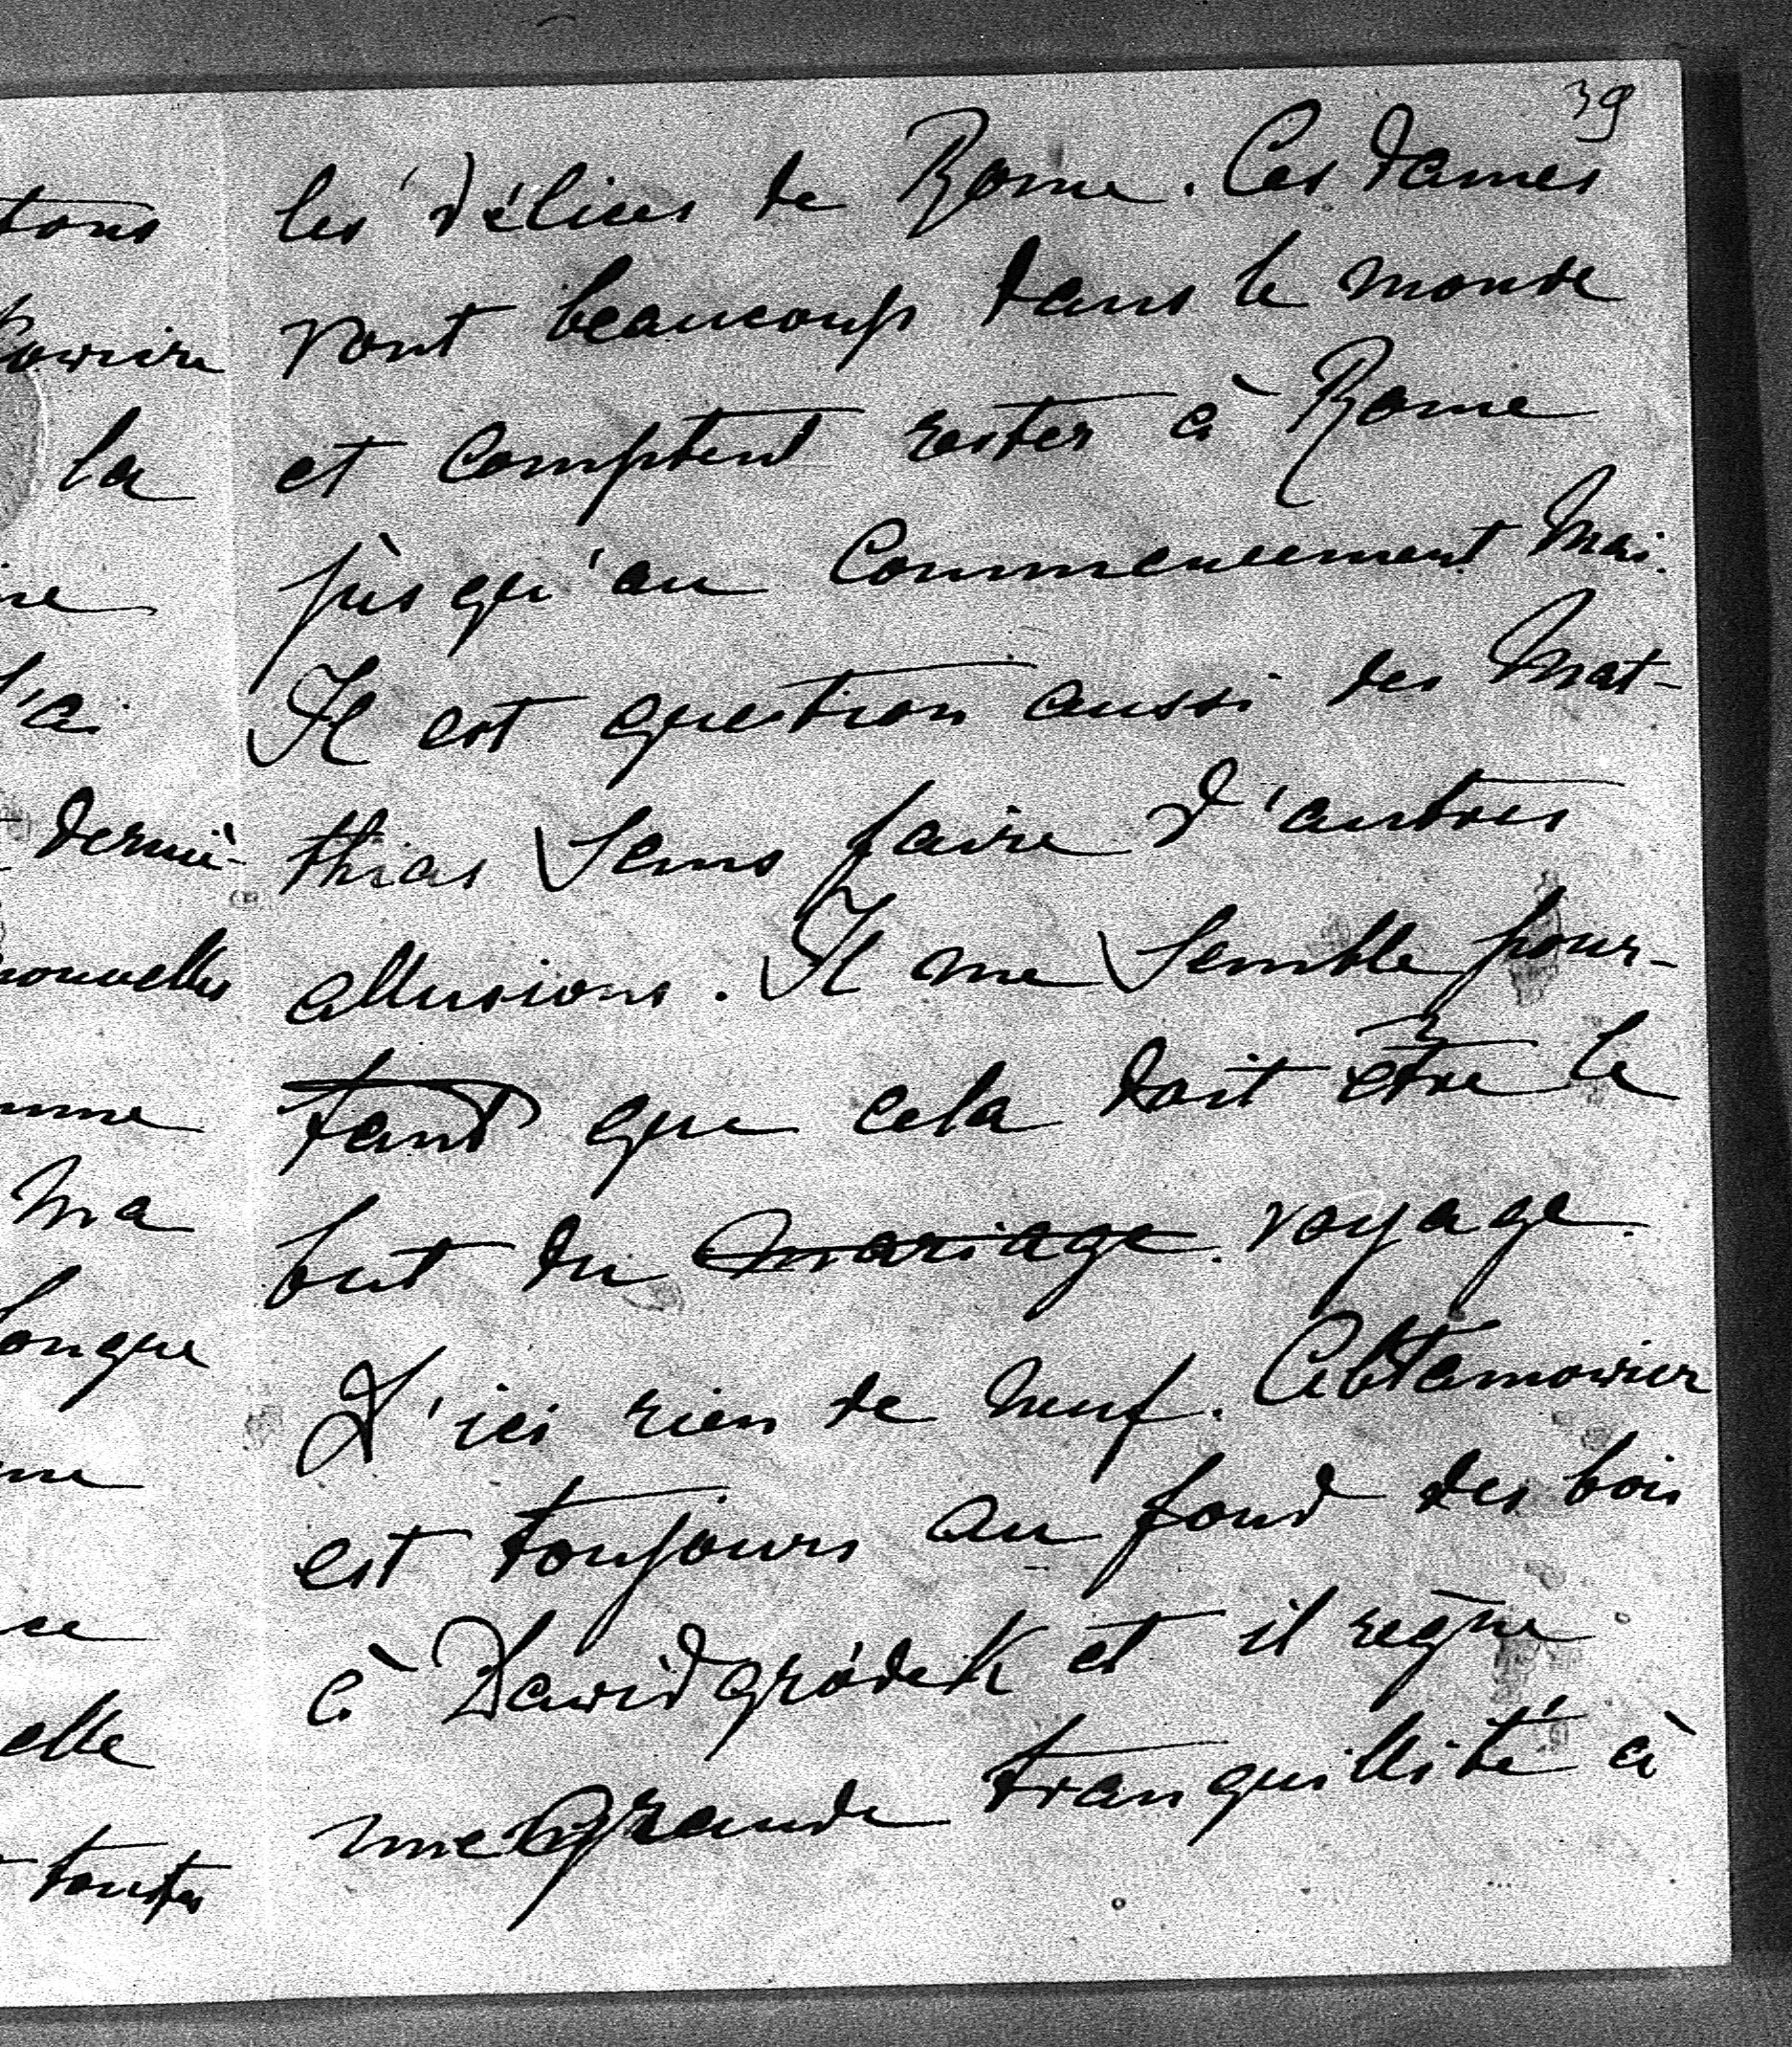 39
les délices de Rome. Ces dames
vont beaucoup dans le monde
et comptent rester à Rome
jusqu'au commencement Mai.
Il est question aussi des Mat-
thias sans faire d'autres
allusions. Il me semble pour-
tant que cela doit être le
but du mariage voyage.
D'ici rien de neuf.
est toujours au fond des bois
à Dawidgródek et il règne
une grande tranquillité à
tons
la
derniè-
nouvelles
ma
longue
elle
toutes